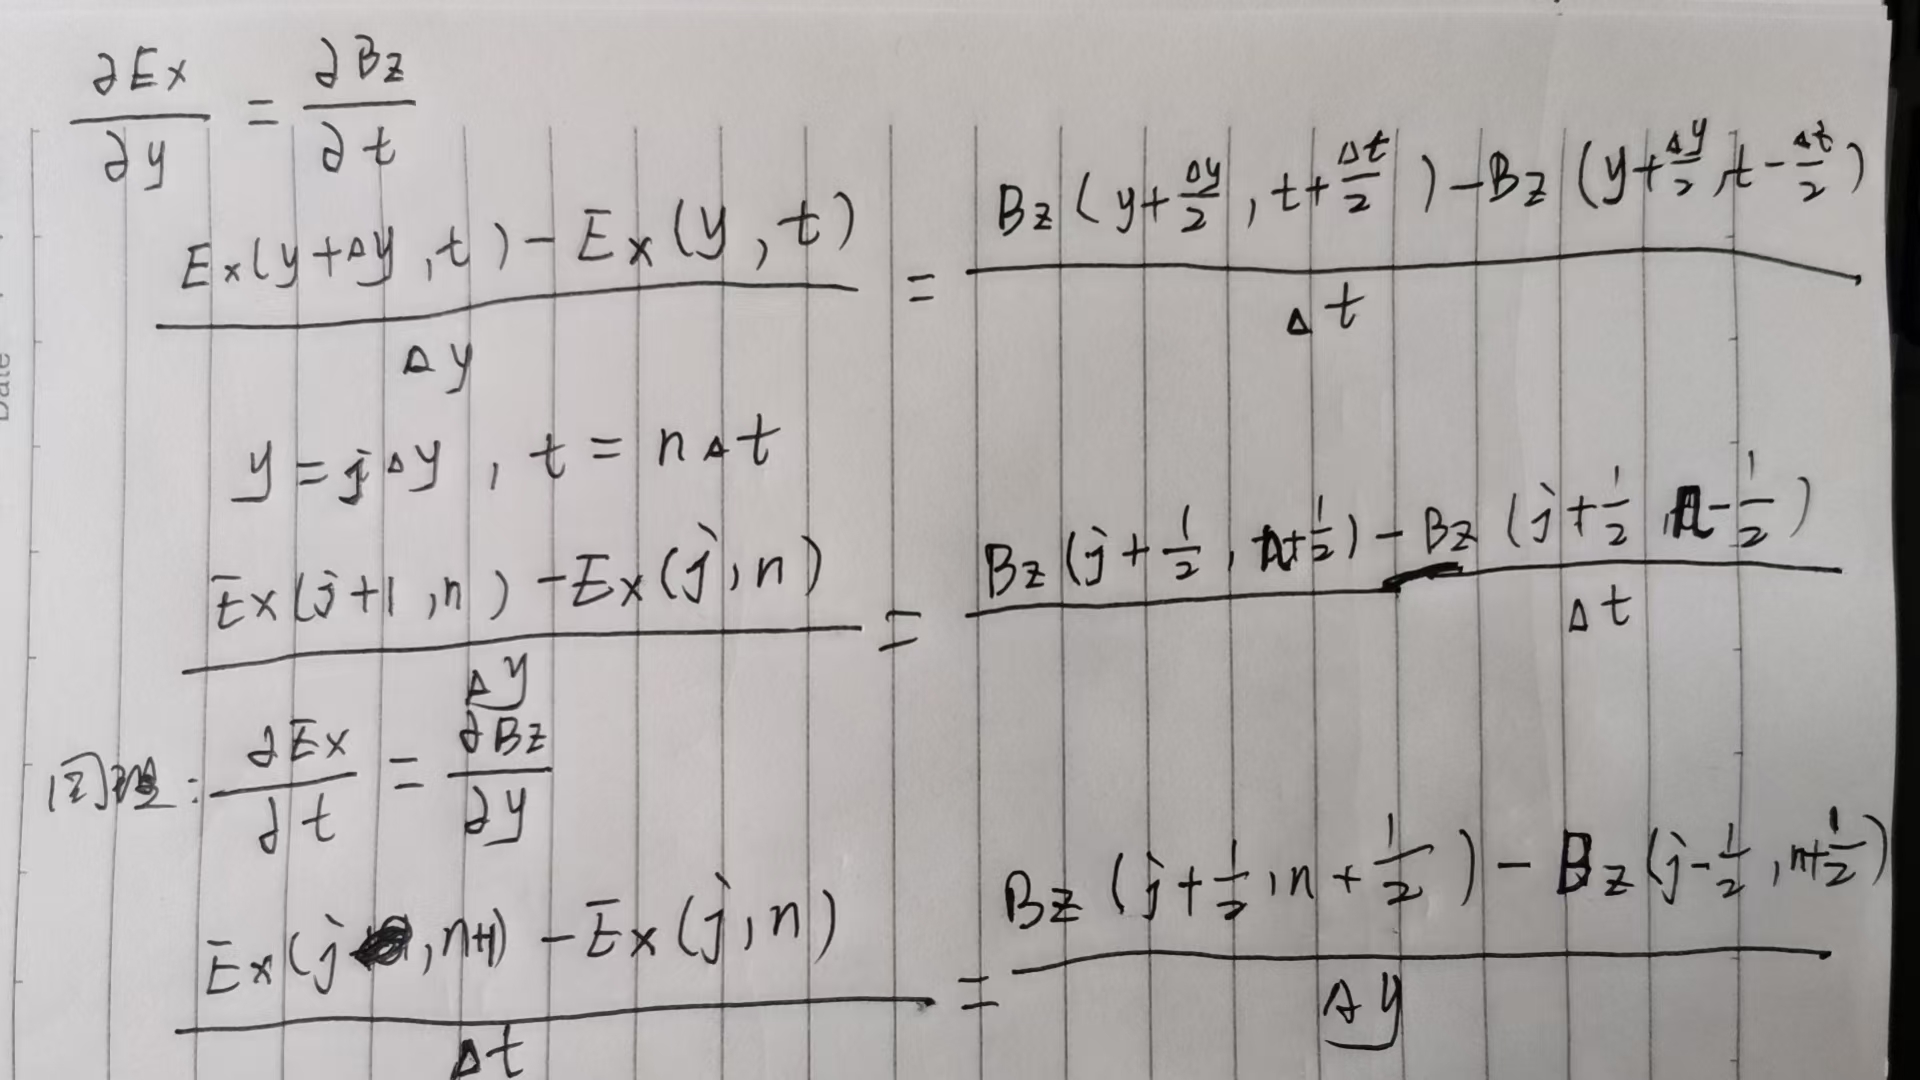 ∂Ex/∂y = ∂Bz/∂t
(Ex(y+Δy,t)-Ex(y,t))/Δy = (Bz(y+Δy/2,t+Δt/2)-Bz(y+Δy/2,t-Δt/2))/Δt
y=jΔy, t=nΔt
(Ex(j+1,n)-Ex(j,n))/Δy = (Bz(j+1/2,n+1/2)-Bz(j+1/2,n-1/2))/Δt
同理: ∂Ex/∂t = ∂Bz/∂y
(Ex(j,n+1)-Ex(j,n))/Δt = (Bz(j+1/2,n+1/2)-Bz(j-1/2,n+1/2))/Δy
Date